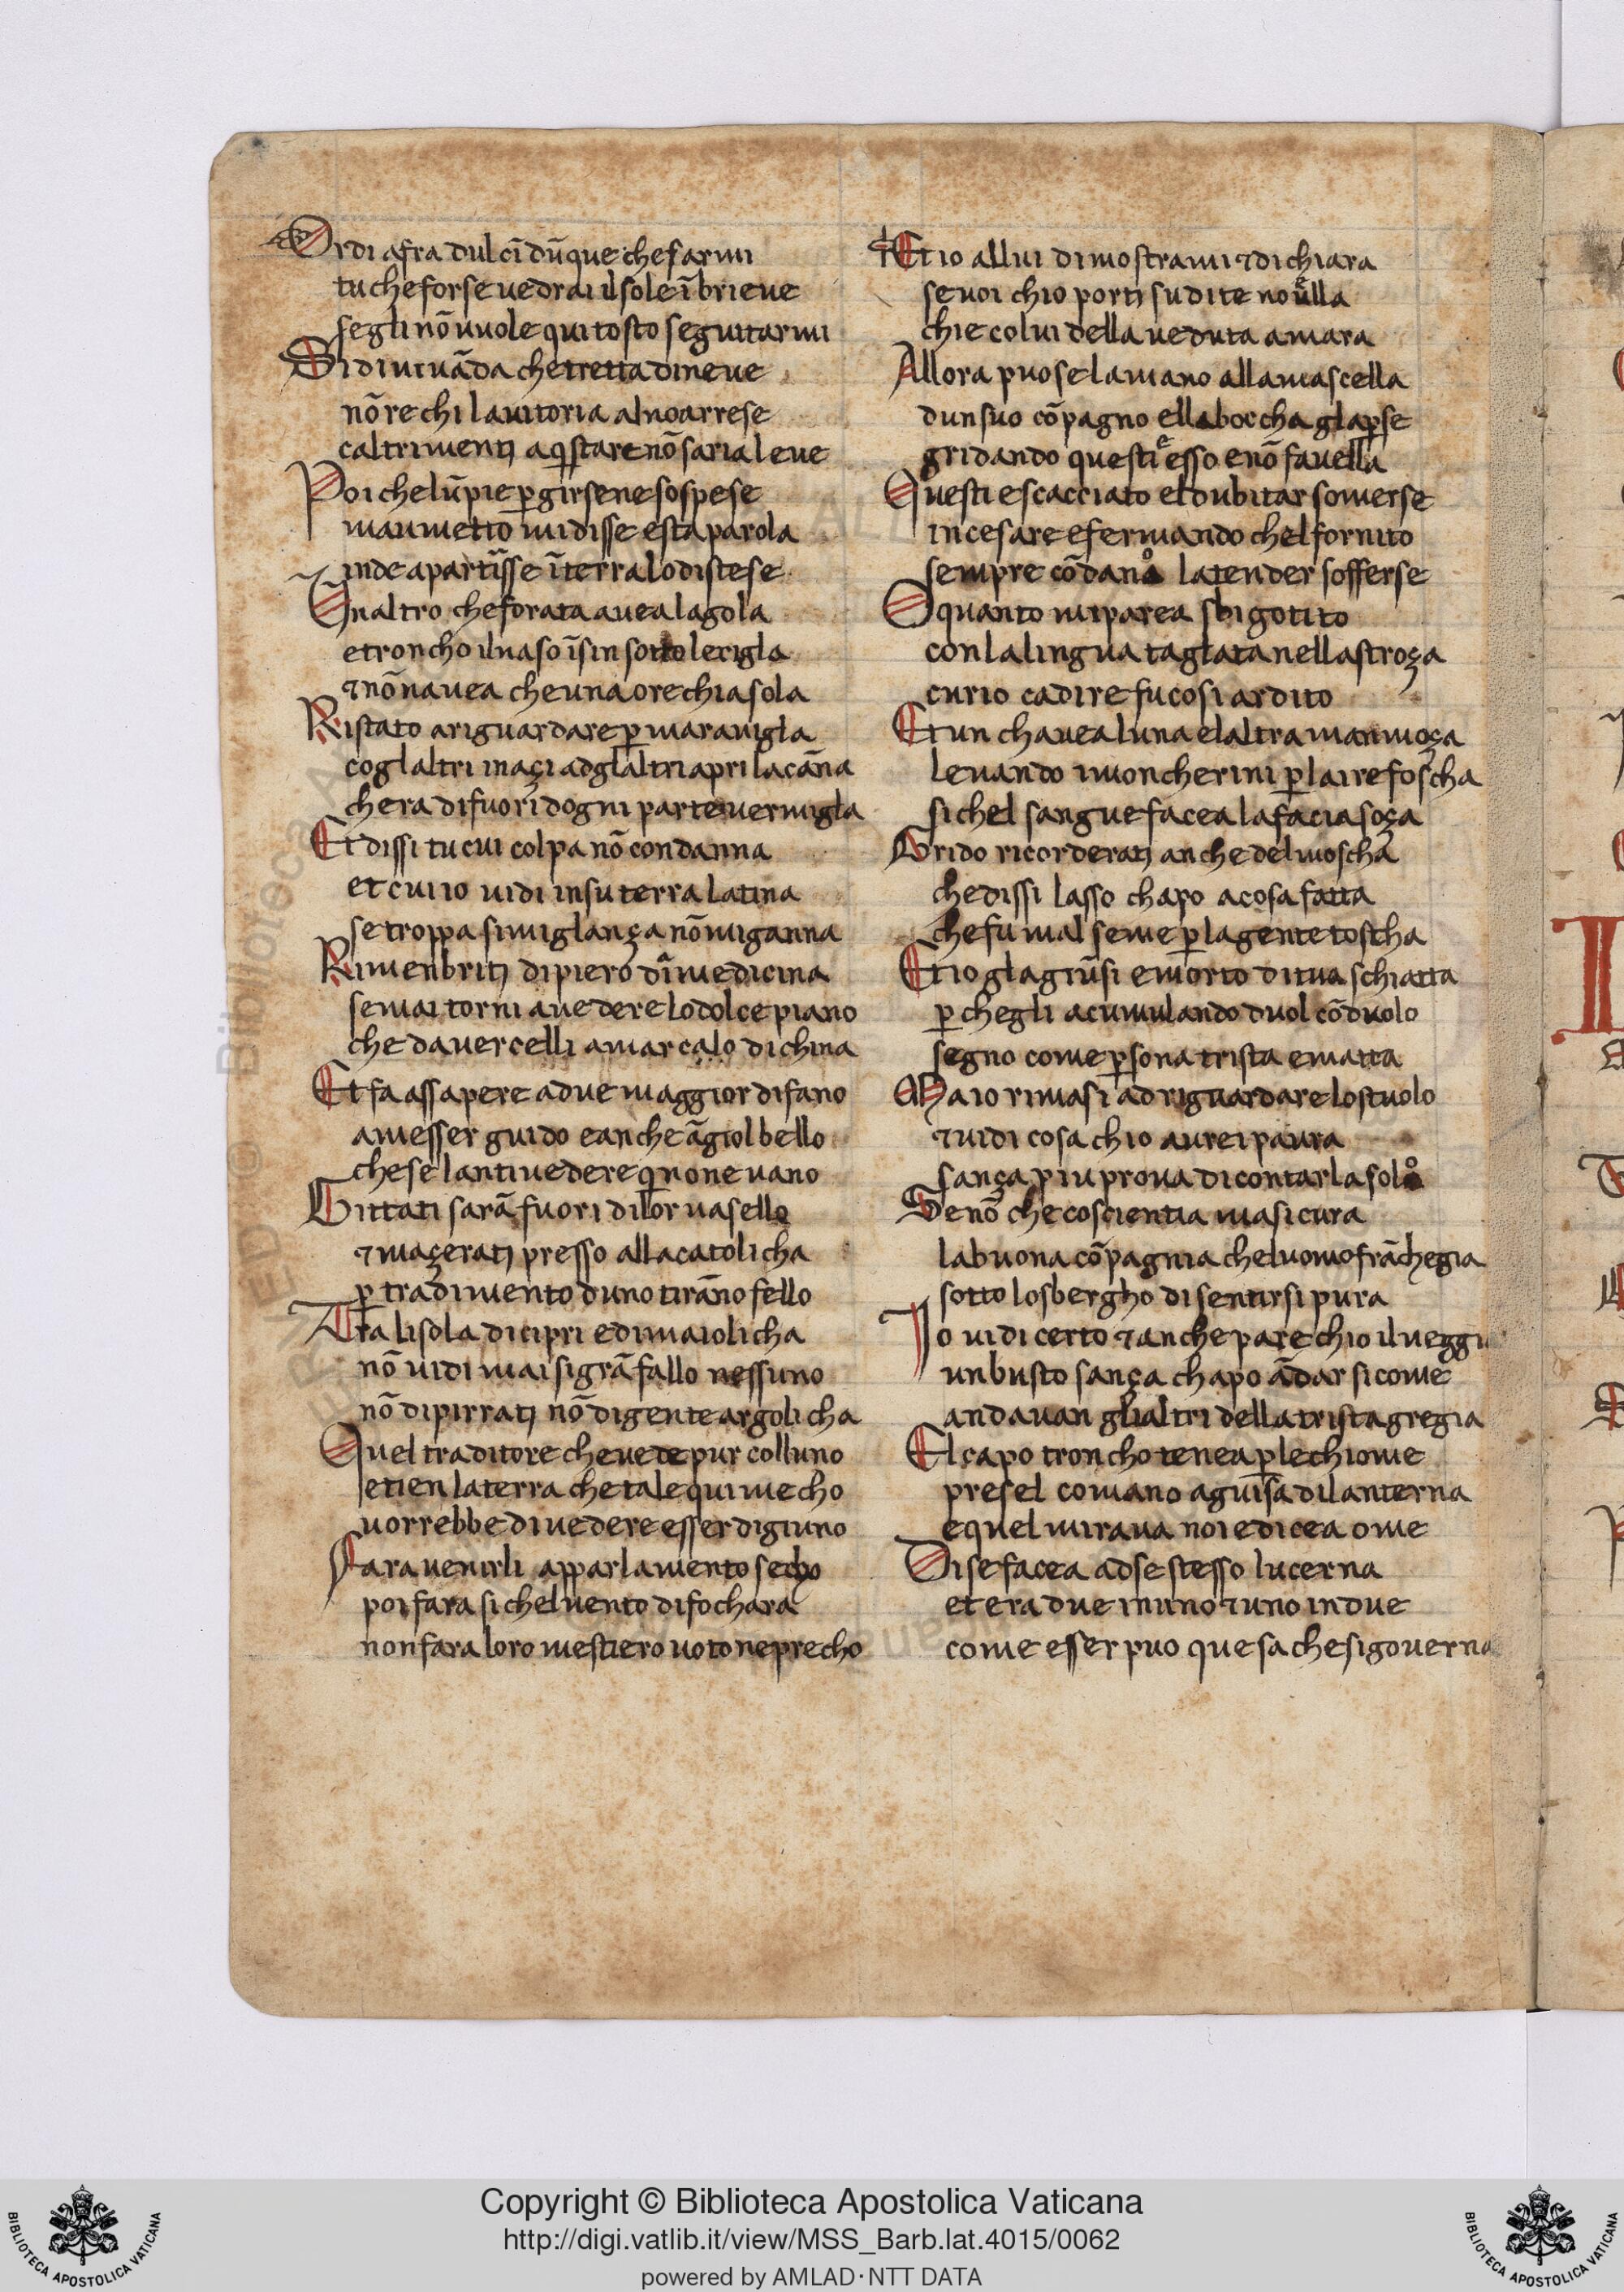 Ordi afra dulcī dūque che sarmi
tu che forse uedrai il sole ī brieue
segli nō uuole qui tosto seguitarmi
Si di uiuāda che tretta di neue
nō rechi la uitoria al noarrese
caltrimenti aqistare nō saria leue
Poi che lū pie p girsene sospese
maumetto mi disse esta parola
inde a partirsse ī terra lo distese
Vnaltro che forata auea la gola
e troncho il naso īsin sotto le cigla
⁊ nō nauea che una orechia sola
Ristato a riguardare p marauigla
cogl altri ināçi adgl altri apri la cāna
chera di fuori dogni parte uermigla
Et dissi tu cui colpa nō condanna
et cui io uidi in su terra latina
se troppa simiglança nō miganna
Rimenbriti di piero dā medicina
se mai torni a uedere lo dolce piano
che da uercelli a marcalo dichina
Et fa assapere a due maggior di fano
a messer guido e anche āgiolbello
che se lantiuedere q none uano
Gittati sarā fuori di lor uasello
⁊ maçerati presso alla catolicha
p tradimento duno tirāno fello
Tra lisola di cipri e di maiolicha
nō uidi mai si grā fallo nessuno
nō di pirrati nō di gente argolicha
Quel traditore che uede pur colluno
e tien la terra che tale qui mecho
uorrebbe di uedere esser digiuno
Fara uenirli apparlamento secho
poi fara si chel uento di fochara
non fara loro mestiero uoto ne precho
Et io allui dimostrami ⁊ dichiara
se uoi chio porti su di te nouella
chi e colui della ueduta amara
Allora puose la mano alla mascella
dun suo cōpagno e lla boccha gl apse
gridando questi e esso e nō fauella
Questi e scacciato el dubitar somerse
in cesare efermando chel fornito
sempre cō dano latender sofferse
O quanto mi parea sbigotito
con la lingua taglata nella stroça
curio cadire fu cosi ardito
Et un chauea luna e laltra man moça
leuando i moncherini p laire foscha
si chel sangue facea la facia soça
Grido ricorderati anche del moscha
che dissi lasso chapo a cosa fatta
che fu mal seme p la gente toscha
Et io gl agiūsi e morto di tua schiatta
p chegli acumulando duol cō duolo
segno come psona trista e matta
Ma io rimasi ad riguardare lo stuolo
⁊ uidi cosa chio aurei paura
sança piu proua di contarla solo
Se nō che coscientia masicura
la buona cōpagnia che luomo frāchegia
sotto losbergho di sentirsi pura
Io uidi certo ⁊ anche pare chio il ueggi
un busto sança chapo ādar si come
andauan gli altri della trista gregia
El capo troncho tenea p le chiome
presel co mano a guisa di lanterna
e quel miraua noi e dicea ome
Di se facea ad se stesso lucerna
et era due in uno ⁊ uno in due
come esser puo que sa che si gouerna
Copyright © Biblioteca Apostolica Vaticana
http://digi.vatlib.it/view/MSS_Barb.lat.4015/0062
powered by AMLAD·NTT DATA
BIBLIOTECA APOSTOLICA VATICANA
BIBLIOTECA APOSTOLICA VATICANA